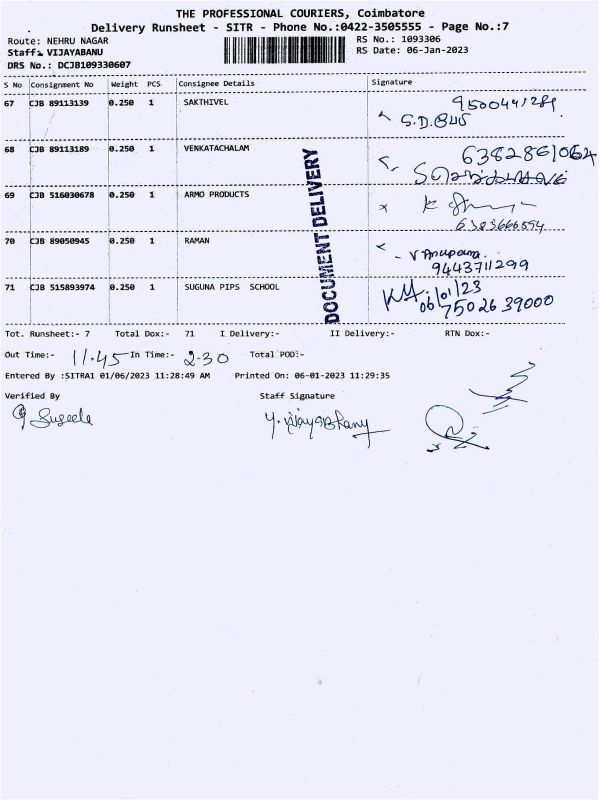 THE PROFESSIONAL COURIERS, Coimbatore
Delivery Runsheet - SITR - Phone No.:0422-3505555 - Page No.:7
Route: NEHRU NAGAR
RS No.: 1093306
Staff: VIJAYABANU
RS Date: 06-Jan-2023
DRS No.: DCJB109330607
S No Consignment No Weight PCS Consignee Details Signature
67 CJB 89113139 0.250 1 SAKTHIVEL 9500441289
68 CJB 89113189 0.250 1 VENKATACHALAM 6382861064
69 CJB 516030678 0.250 1 ARMO PRODUCTS
6383666594
70 CJB 89050945 0.250 1 RAMAN V Anupama.
9443711299
71 CJB 515893974 0.250 1 SUGUNA PIPS SCHOOL 06/01/23
7502639000
DOCUMENT DELIVERY
Tot. Runsheet:- 7 Total Dox:- 71 I Delivery:- II Delivery:- RTN Dox:-
Out Time:- 11.45 In Time:- 2-30 Total POD:-
Entered By :SITRA1 01/06/2023 11:28:49 AM Printed On: 06-01-2023 11:29:35
Verified By Staff Signature